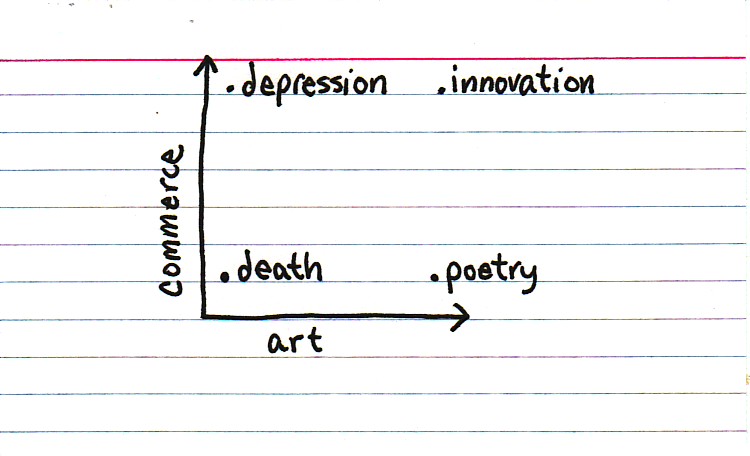 .depression .innovation
commerce
.death .poetry
art